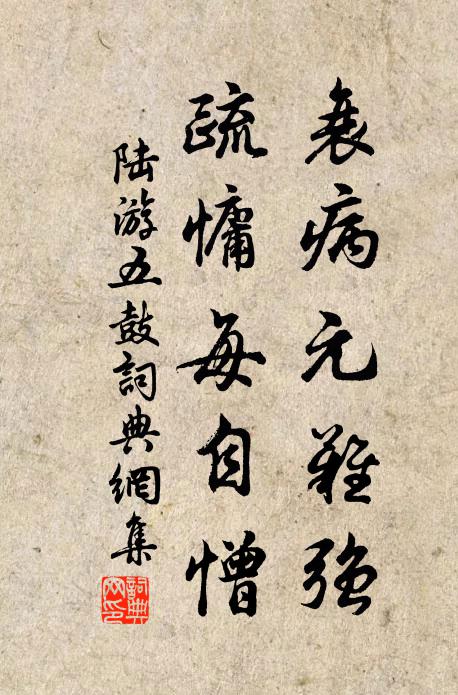 衰病元難強
疏慵每自憎
陸游五鼓詞典網集
詞典
网印